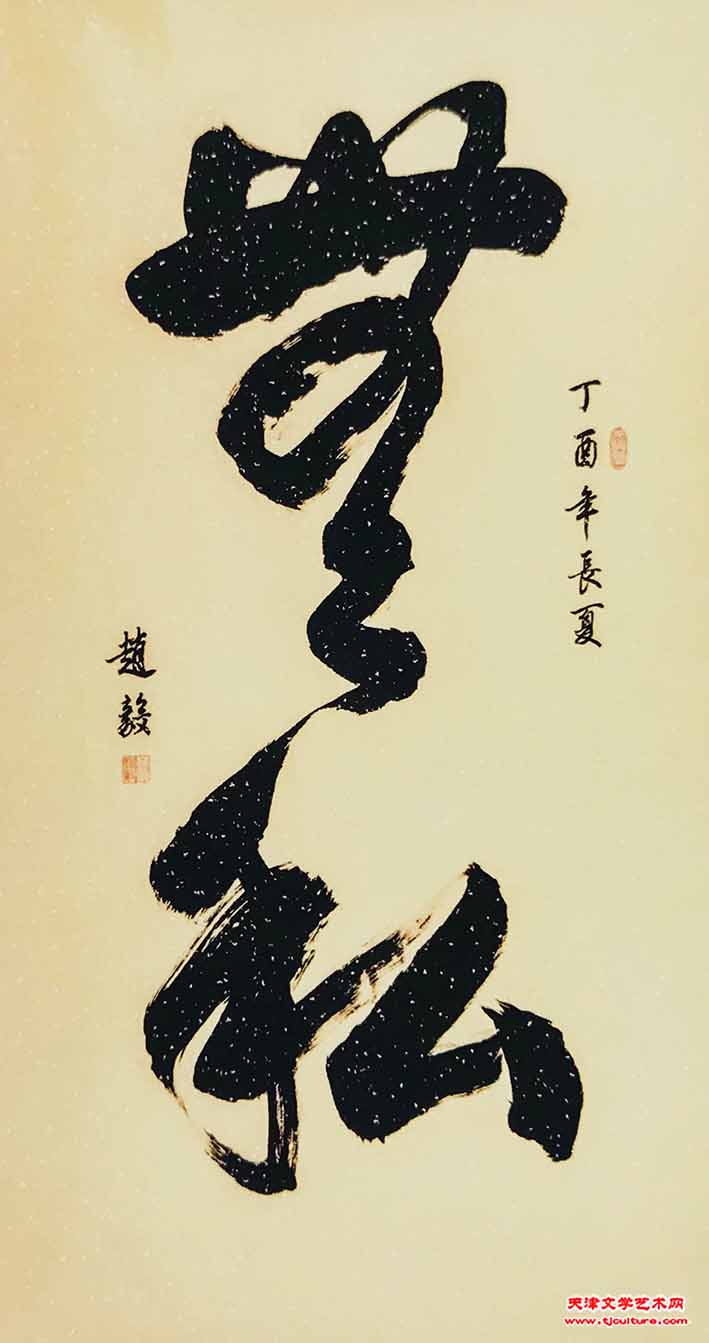 無私
丁酉年長夏
趙毅
天津文学艺术网
www.tjculture.com